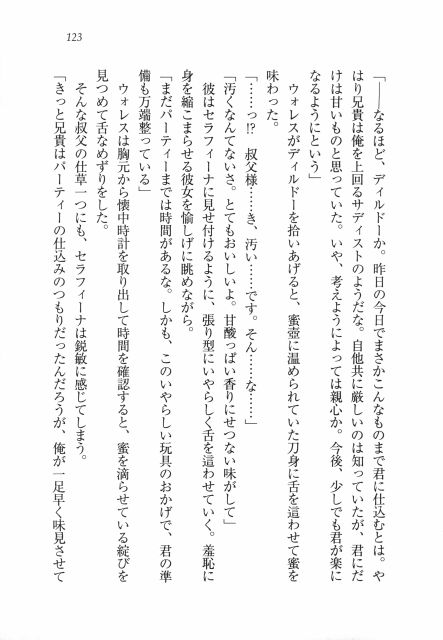 123
「――なるほど、ディルドーか。昨日の今日でまさかこんなものまで君に仕込むとは。や
はり兄貴は俺を上回るサディストのようだな。自他共に厳しいのは知っていたが、君にだ
けは甘いものと思っていた。いや、考えようによっては親心か。今後、少しでも君が楽に
なるようにという」
ウォレスがディルドーを拾いあげると、蜜壺に温められていた刀身に舌を這わせて蜜を
味わった。
「……っ!?　叔父様……き、汚い……です。そん……な……」
「汚くなんてないさ。とてもおいしいよ。甘酸っぱい香りにせつない味がして」
彼はセラフィーナに見せ付けるように、張り型にいやらしく舌を這わせていく。羞恥に
身を縮こまらせる彼女を愉しげに眺めながら。
「まだパーティーまでは時間があるな。しかも、このいやらしい玩具のおかげで、君の準
備も万端整っている」
ウォレスは胸元から懐中時計を取り出して時間を確認すると、蜜を滴らせている綻びを
見つめて舌なめずりをした。
そんな叔父の仕草一つにも、セラフィーナは鋭敏に感じてしまう。
「きっと兄貴はパーティーの仕込みのつもりだったんだろうが、俺が一足早く味見させて